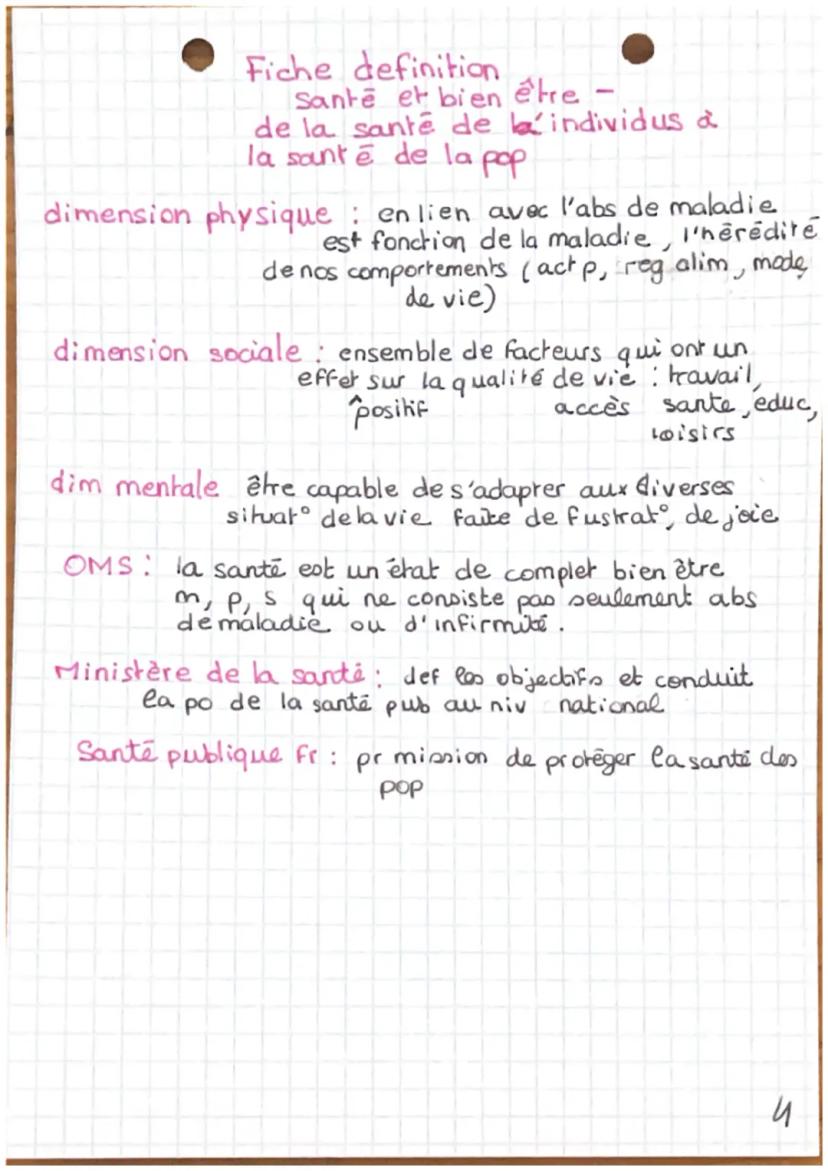 Fiche definition
santé et bien être -
de la santé de l'individus à
la santé de la pop
dimension physique : en lien avec l'abs de maladie
est fonction de la maladie, l'hérédité
de nos comportements (act p, reg alim, mode
de vie)
dimension sociale : ensemble de facteurs qui ont un
effet sur la qualité de vie : travail,
^positif accès santé, educ,
loisirs
dim mentale être capable de s'adapter aux diverses
situat° de la vie faite de fustrat°, de joie
OMS : la santé est un état de complet bien être
m, p, s qui ne consiste pas seulement abs
de maladie ou d'infirmité.
Ministère de la santé : def les objectifs et conduit
la po de la santé pub au niv national
Santé publique Fr : pr mission de protéger la santé des
pop
4